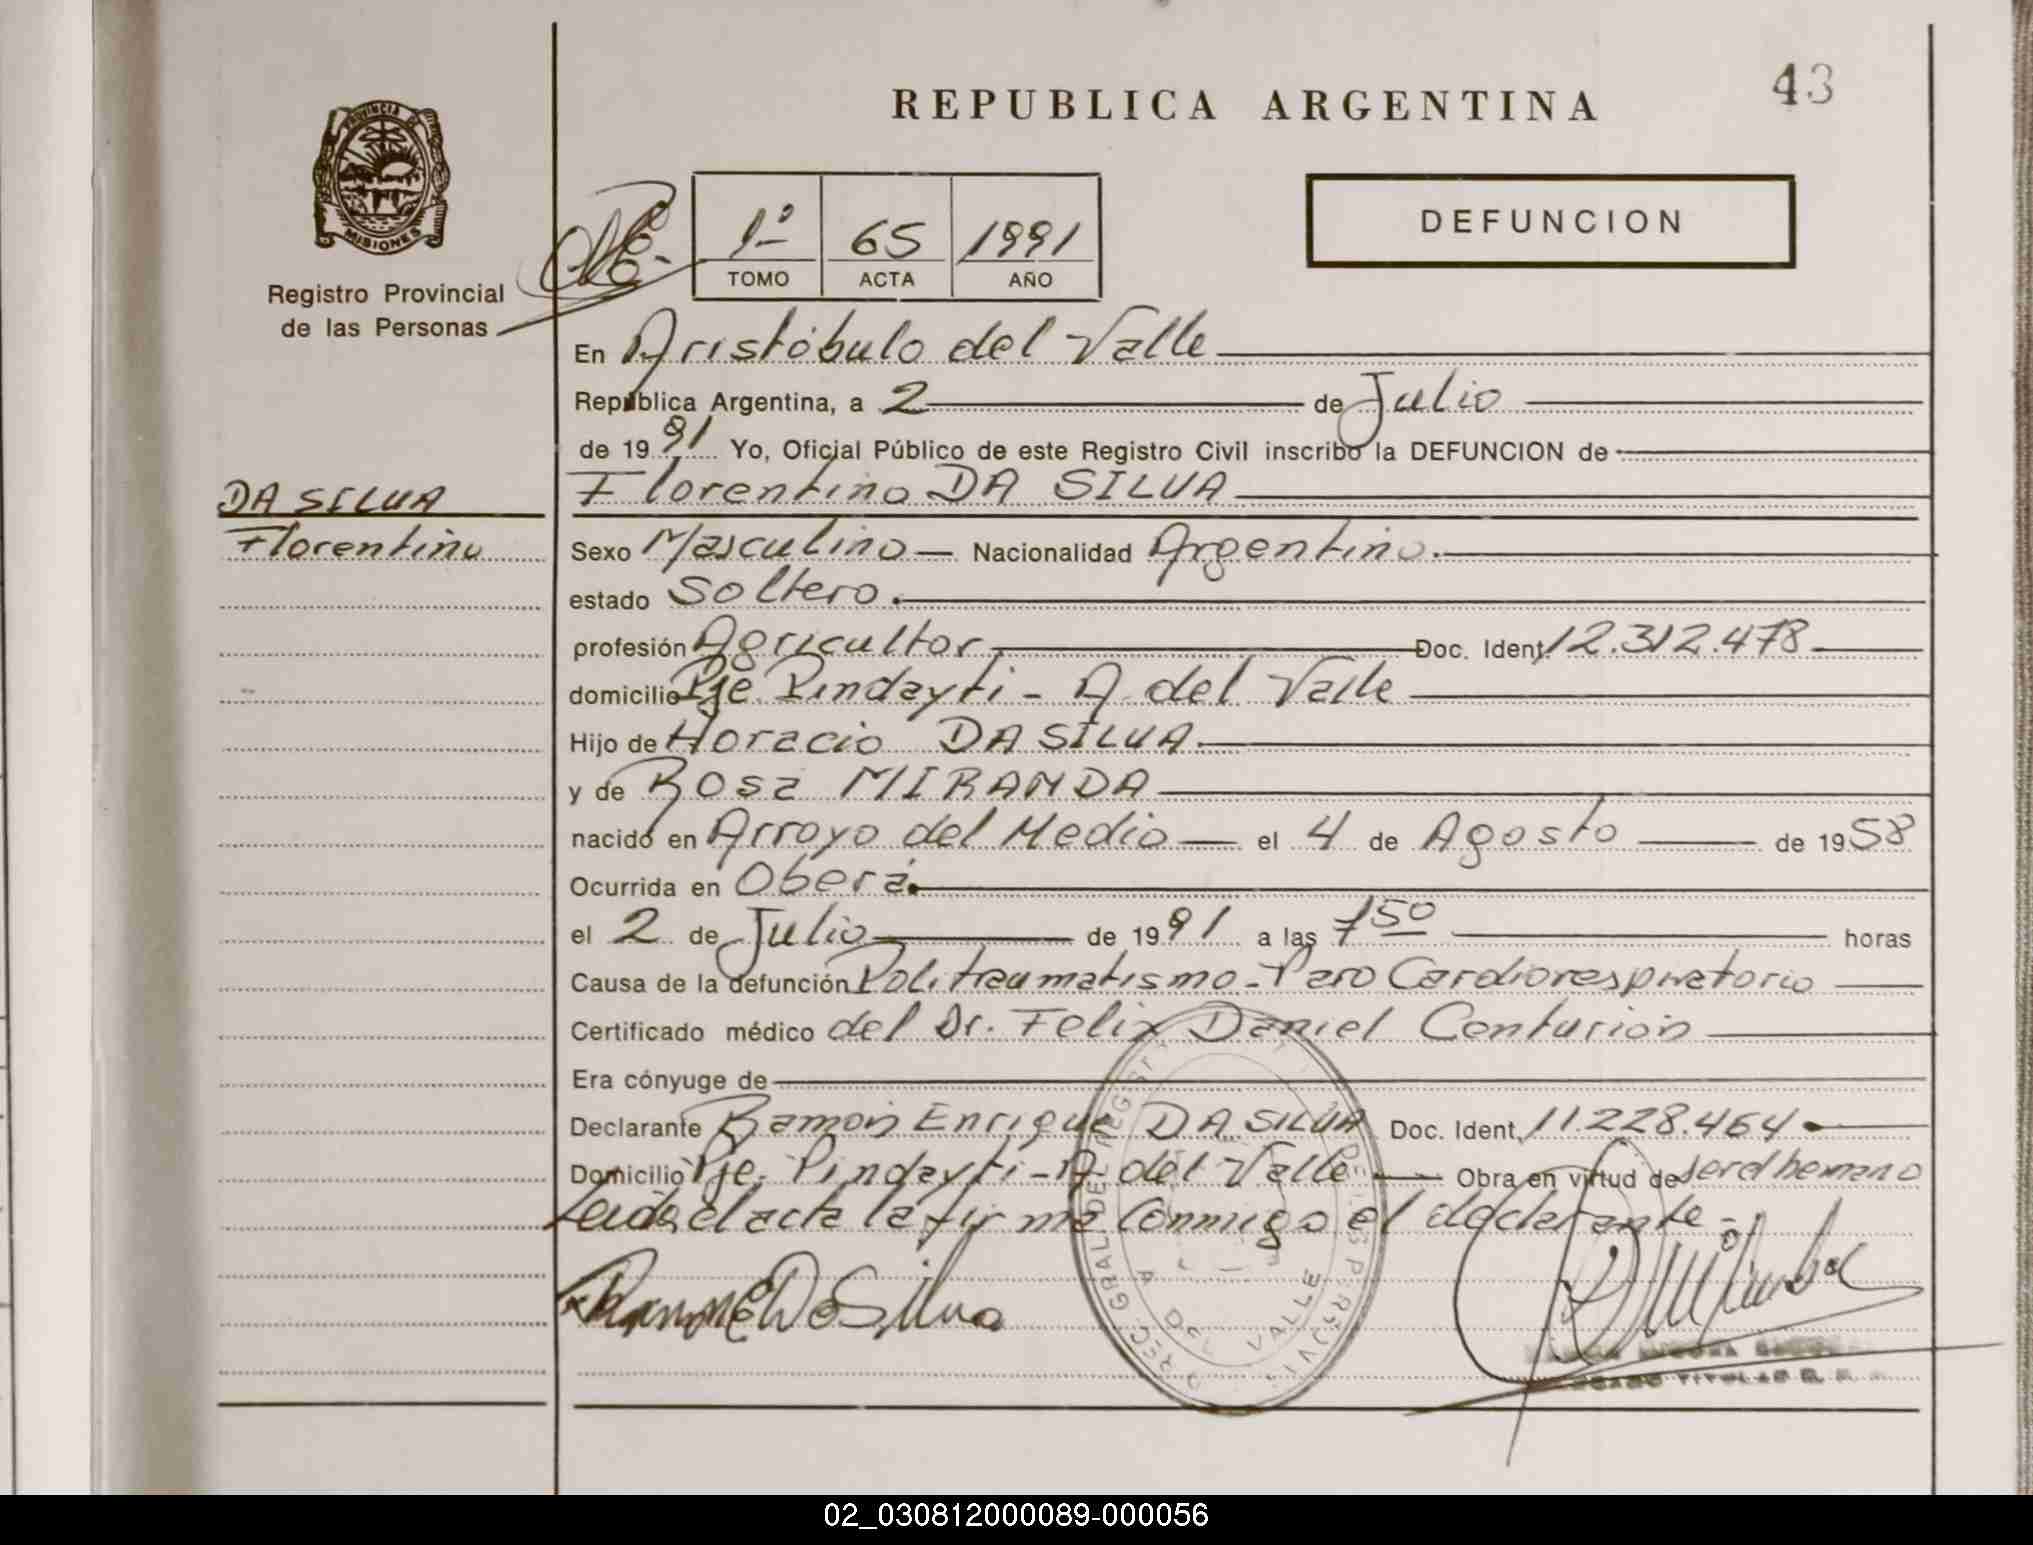 43
REPUBLICA ARGENTINA
PROVINCIA DE
MISIONES
Registro Provincial
de las Personas
1º 65 1991
TOMO ACTA AÑO
DEFUNCION
En Aristóbulo del Valle
República Argentina, a 2 de Julio
de 1991 Yo, Oficial Público de este Registro Civil inscribo la DEFUNCION de
DA SILVA
Florentino
Florentino DA SILVA
Sexo Masculino Nacionalidad Argentino.
estado Soltero.
profesión Agricultor Doc. Ident. 12.312.478
domicilio Pje. Pindayti - A. del Valle
Hijo de Horacio DA SILVA
y de Rosa MIRANDA
nacido en Arroyo del Medio el 4 de Agosto de 1958
Ocurrida en Oberá.
el 2 de Julio de 1991 a las 7 50 horas
Causa de la defunción Politraumatismo - Paro Cardiorespiratorio
Certificado médico del Dr. Felix Daniel Centurión
Era cónyuge de
Declarante Ramón Enrique DA SILVA Doc. Ident. 11.228.464
Domicilio Pje. Pindayti - A del Valle Obra en virtud de ser el hermano
Leida el acta la firma conmigo el declarante -
Ramon E Da Silva
VALLE
02_030812000089-000056